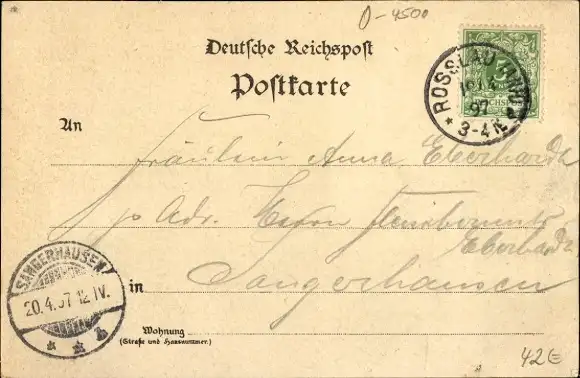 0-4500
Deutsche Reichspost
Postkarte
ROSSLAU
97
* 3-4 N
An
Fräulein Anna Eberhardt
p Adr. Herrn
Eberhardt
in Sangerhausen
SANGERHAUSEN
20.4.97 12 IV.
Wohnung
(Straße und Hausnummer.)
42E